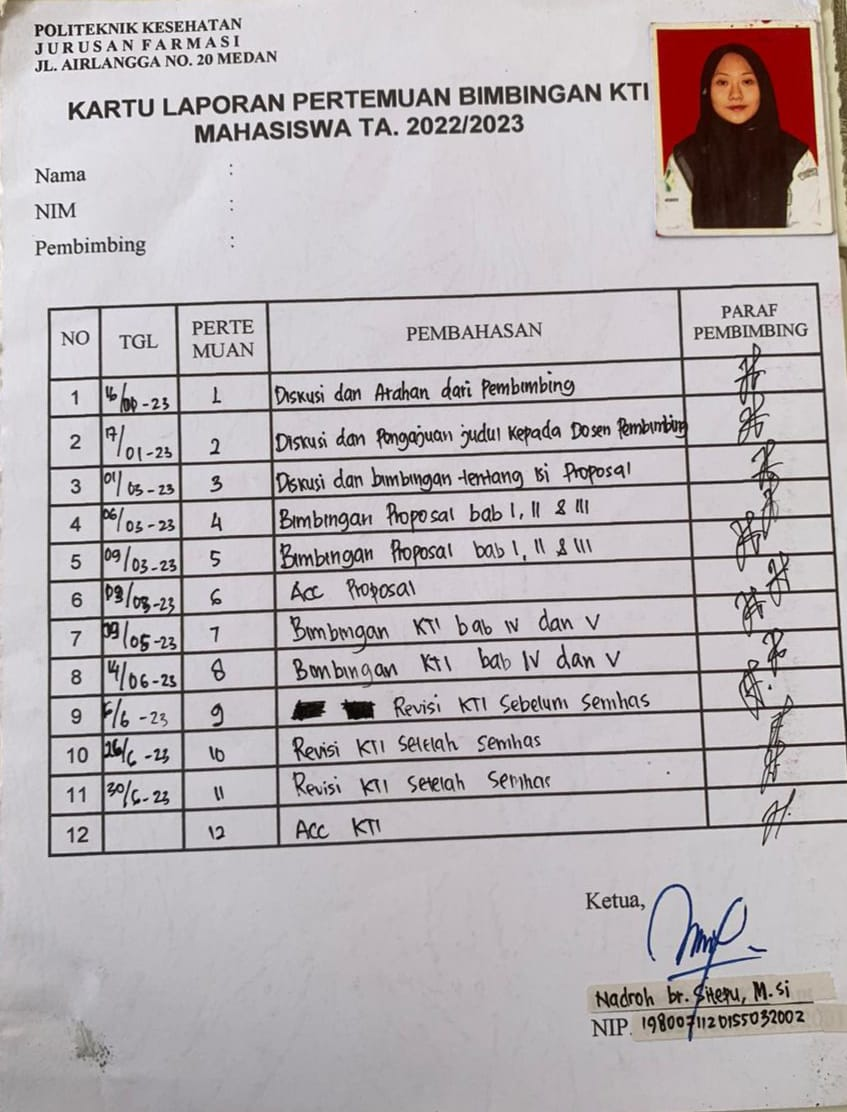 POLITEKNIK KESEHATAN
JURUSAN FARMASI
JL. AIRLANGGA NO. 20 MEDAN
KARTU LAPORAN PERTEMUAN BIMBINGAN KTI
MAHASISWA TA. 2022/2023
Nama :
NIM :
Pembimbing :
NO TGL PERTE MUAN PEMBAHASAN PARAF PEMBIMBING
1 1 Diskusi dan Arahan dari Pembimbing
2 17/01-23 2 Diskusi dan Pengajuan judul kepada Dosen Pembimbing
3 01/03-23 3 Diskusi dan bimbingan tentang isi Proposal
4 06/03-23 4 Bimbingan Proposal bab I, II & III
5 09/03-23 5 Bimbingan Proposal bab I, II & III
6 6 Acc Proposal
7 09/05-23 7 Bimbingan KTI bab IV dan V
8 14/06-23 8 Bimbingan KTI bab IV dan V
9 9 Revisi KTI Sebelum Semhas
10 26/6-23 10 Revisi KTI Setelah Semhas
11 30/6-23 11 Revisi KTI Setelah Semhas
12 12 Acc KTI
Ketua,
Nadroh br. Sitepu, M.Si
NIP. 198007112015032002